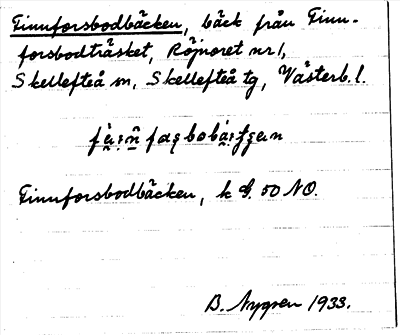 Finnforsbodbäcken, bäck från Finn-
forsbodträsket, Röjnoret nr 1,
Skellefteå sn, Skellefteå tg, Västerb. l.
Finnforsbodbäcken, k 50 NO.
B. Nygren 1933.